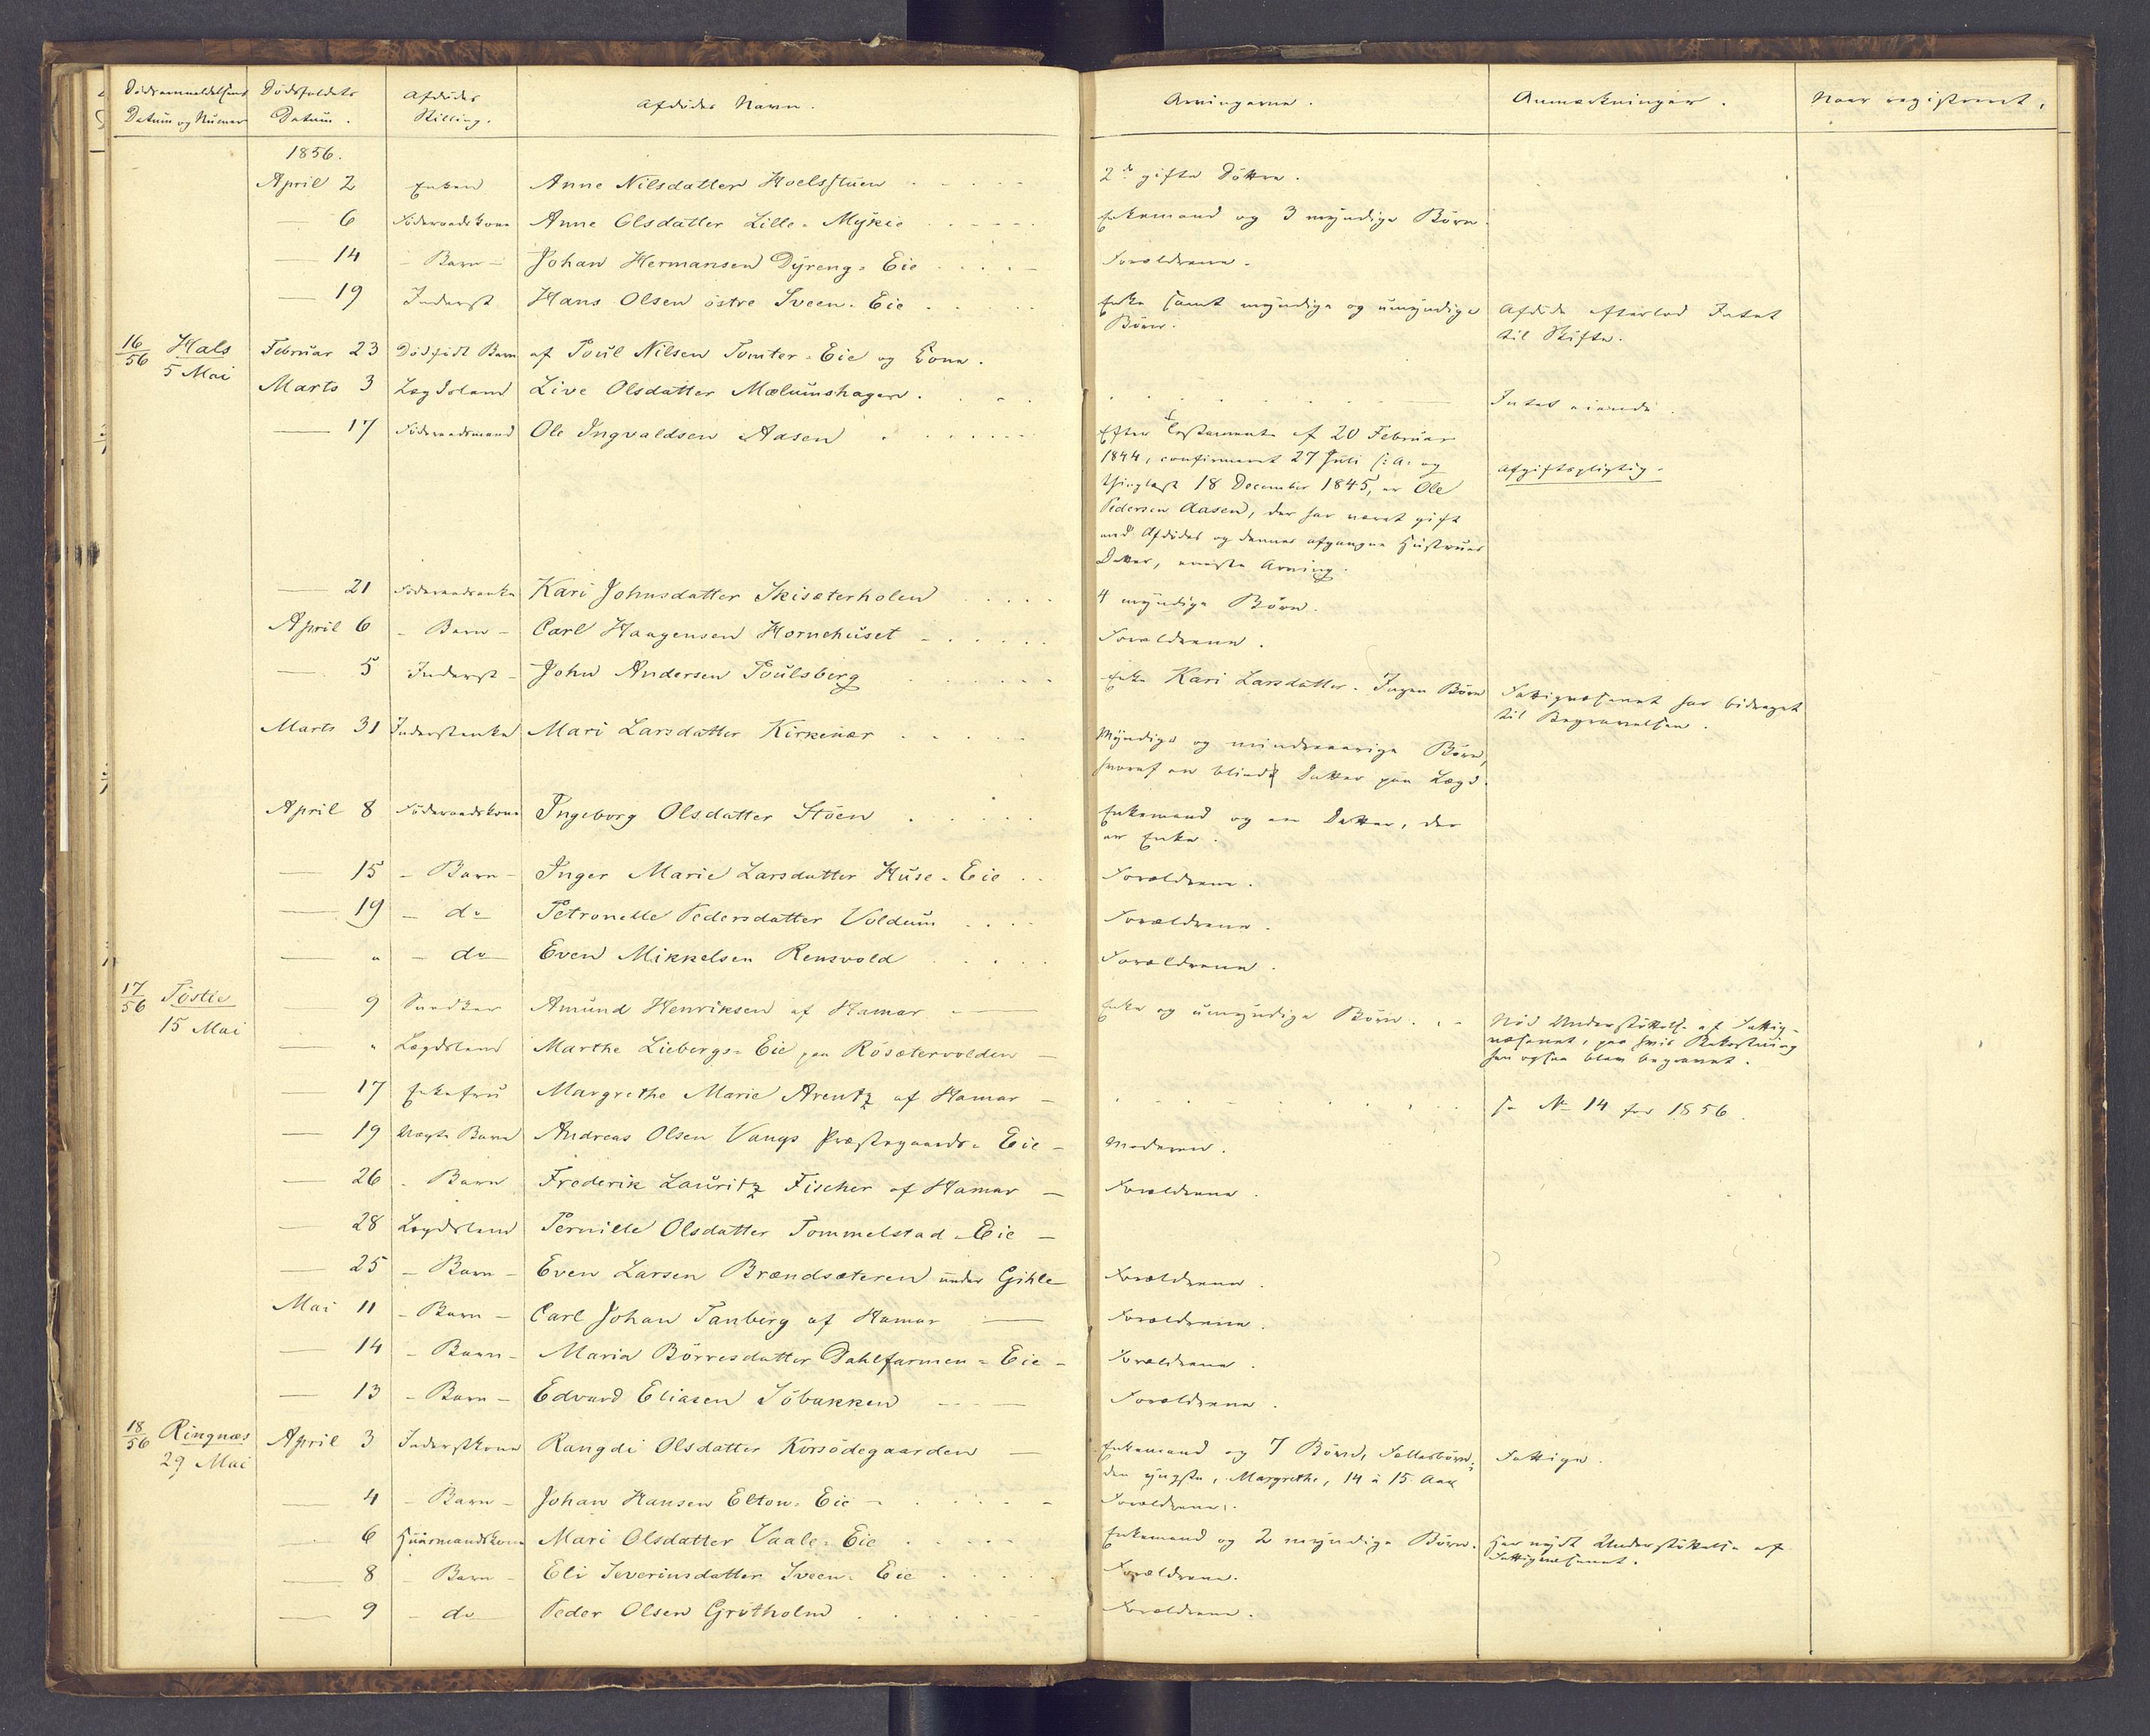 Dødsanmeldelsens Datum og Numer | Dødsfaldets Datum. | Afdødes Stilling. | Afdødes Navn. | Arvingerne. | Anmærkninger. | Naar registreret.
1856.
April 2 | Enken | Anne Nilsdatter Hoelsstuen | 2de gifte Døttre.
— 6 | Föderaadskone | Anne Olsdatter Lille-Mykie | Enkemand og 3 myndige Börn.
— 14 | Barn | Johan Hermansen Dÿreng-Eie | Forældrene.
— 19 | Inderst | Hans Olsen östre Sveen-Eie | Enke samt myndige og umyndige | Afdøde efterlod Intet
Börn. | til Skifte.
16/56 Hals | Februar 23 | Dödfödt Barn | af Poul Nilsen Tomter-Eie og Kone.
5 Mai
Marts 3 | Lægdslem | Live Olsdatter Mælumshagen | Intet eiende.
— 17 | Föderaadsmand | Ole Ingvaldsen Aasen | Efter Testamente af 20 Februar
1844, confirmeret 27 Juli s: A: og | Afgiftspligtig.
thinglæst 18 December 1845, er Ole
Pedersen Aasen, der har været gift
med Afdödes og dennes afgangne Hustrues
Datter, eneste Arving.
— 21 | Föderaadsenke | Kari Johnsdatter Skisæterholen | 4 myndige Börn.
April 6 | Barn | Carl Haagensen Hornehuset | Forældrene.
— 5 | Inderst | John Andersen Poulsberg | Enke Kari Larsdatter. Ingen Börn | Fattigvæsenet har bidraget
til Begravelsen.
Marts 31 | Inderstenke | Mari Larsdatter Kirkenær | Myndige og mindreaarige Börn,
hvoraf en blind Datter paa Lægd.
April 8 | Föderaadskone | Ingeborg Olsdatter Stöen | Enkemand og en Datter, der
er Enke.
— 15 | Barn | Inger Marie Larsdatter Huse-Eie | Forældrene.
— 19 | do | Petronelle Pedersdatter Voldum | Forældrene.
— " | do | Even Mikkelsen Rensvold | Forældrene.
17/56 Töstie | — 9 | Snedker | Amund Henriksen af Hamar | Enke og umyndige Börn. | Nöd Understöttelse af Fattig-
15 Mai | væsenet, paa hvis Bekostning
— " | Lægdslem | Marthe Liebergs-Eie paa Rösætervolden | han ogsaa blev begravet.
— 17 | Enkefru | Margrethe Marie Arentz af Hamar | Se No 14 for 1856.
— 19 | Uægte Barn | Andreas Olsen Vangs Præstegaards-Eie | Moderen.
— 26 | Barn | Frederik Lauritz Fischer af Hamar | Forældrene.
— 28 | Lægdslem | Pernille Olsdatter Tommelstad-Eie
— 25 | Barn | Even Larsen Brændsæteren under Gihle | Forældrene.
Mai 11 | Barn | Carl Johan Tanberg af Hamar | Forældrene.
— 14 | Barn | Maria Börresdatter Dahlfarmen-Eie | Forældrene.
— 13 | Barn | Edvard Eliasen Söbakken | Forældrene.
18/56 Ringnæs | April 3 | Inderstkone | Rangdi Olsdatter Korsödegaarden | Enkemand og 7 Börn, Fællesbörn; | Fattige.
29 Mai | den yngste, Margrethe, 14 à 15 Aar
— 4 | Barn | Johan Hansen Elton-Eie | Forældrene.
— 6 | Huusmandskone | Mari Olsdatter Vaale-Eie | Enkemand og 2 myndige Börn. | Har nydt Understöttelse af
Fattigvæsenet.
— 8 | Barn | Eli Severinsdatter Sveen-Eie | Forældrene.
— 9 | do | Peder Olsen Grötholm | Forældrene.